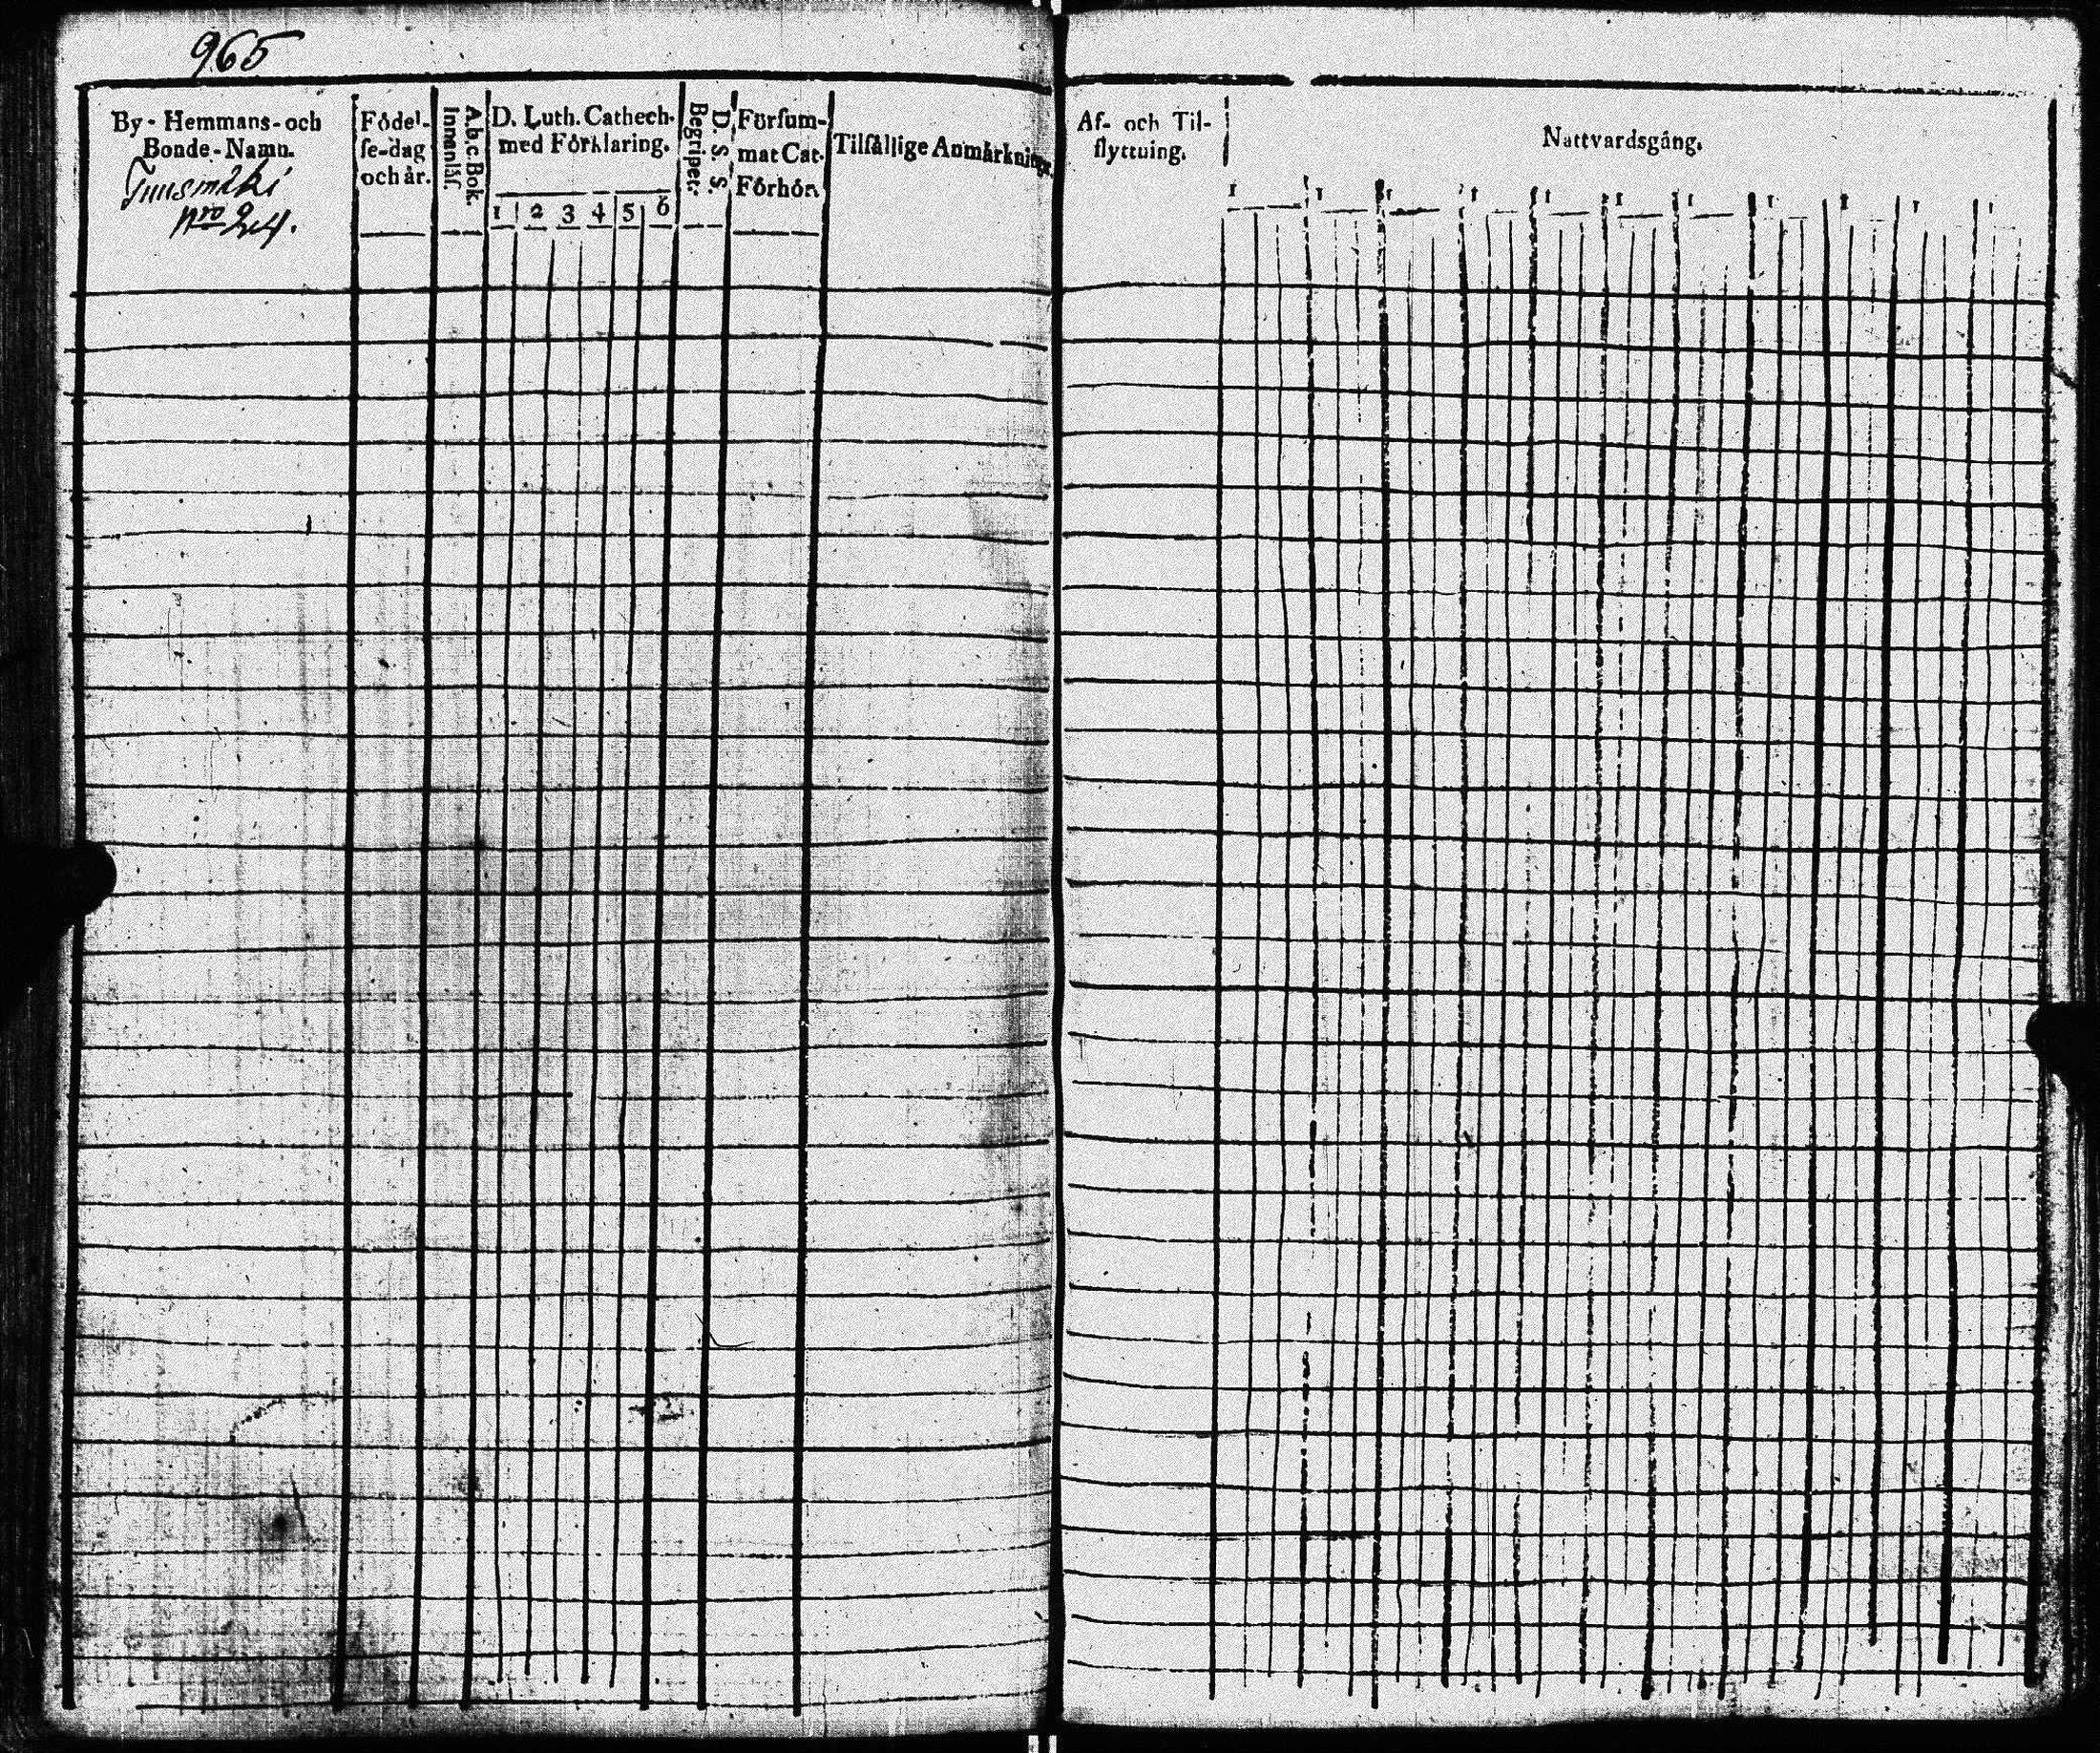 965
By- Hemmans- och
Bonde-Namn.
Tuusmäki
Nro 24.
Födel-
se-dag
och år.
A.b.c. Bok.
Innanläs.
D. Luth. Cathech.
med Förklaring.
1 2 3 4 5 6
D. S. S.
Begriper.
Försum-
mat Cat.
Förhör.
Tilfällige Anmärkning.
Af- och Til-
flyttning.
Nattvardsgång.
1 1 1 1 1 1 1 1 1 1 1